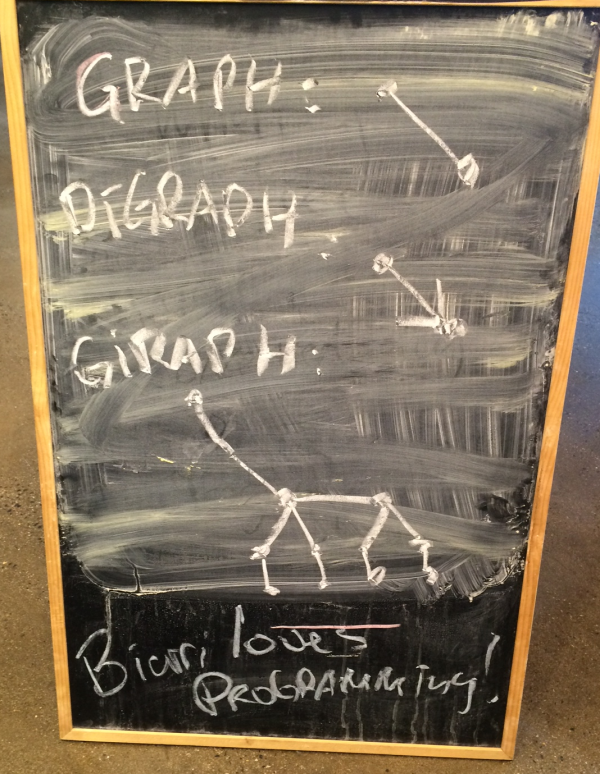 GRAPH:
DIGRAPH
GIRAPH:
loves
PROGRAMMING!